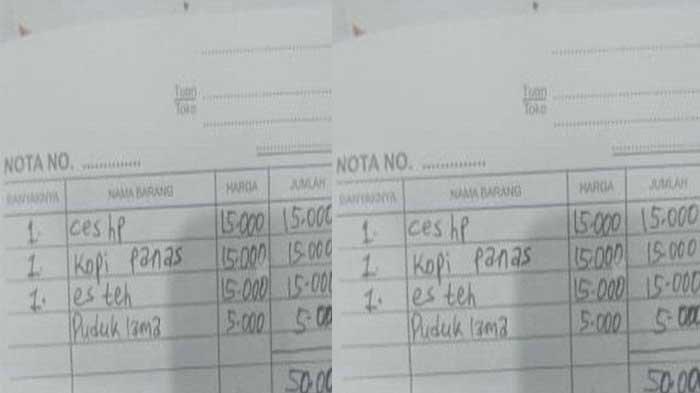 Tuan
Toko
NOTA NO. ..............
BANYAKNYA NAMA BARANG HARGA JUMLAH
1. ces hp 15.000 15.000
1. Kopi panas 15.000 15.000
1. es teh 15.000 15.000
Duduk lama 5.000 5.00
50.00
Tuan
Toko
NOTA NO. ..............
BANYAKNYA NAMA BARANG HARGA JUMLAH
1. ces hp 15.000 15.000
1. Kopi panas 15.000 15.000
1. es teh 15.000 15.000
Duduk lama 5.000 5.000
50.00